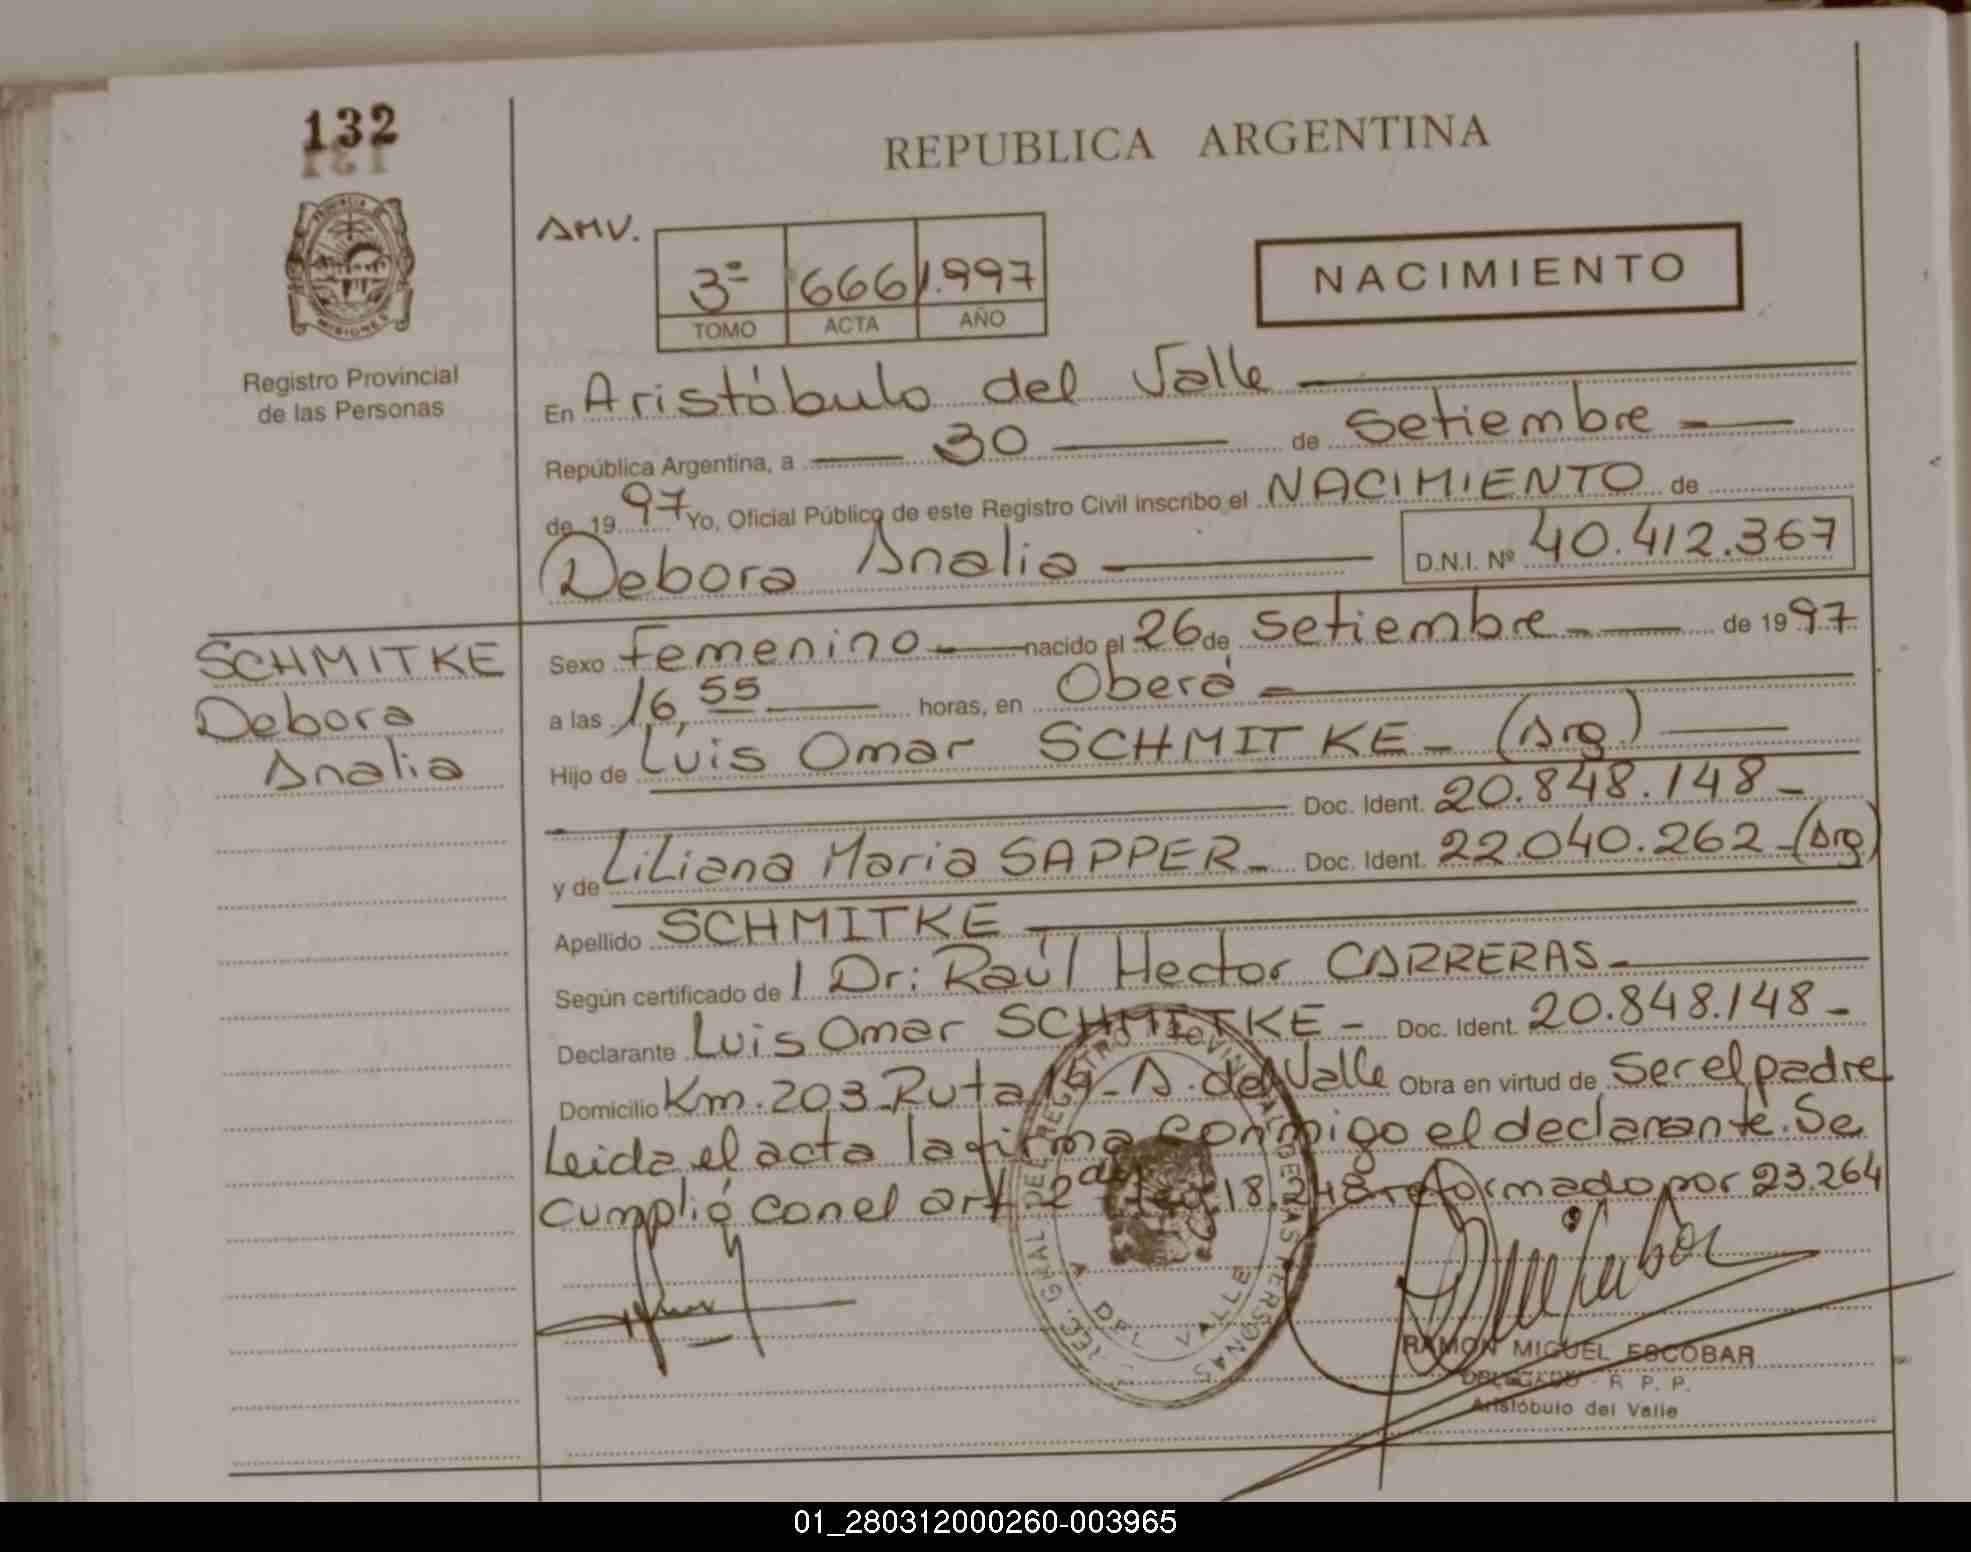 132
REPUBLICA ARGENTINA
PROVINCIA DE
MISIONES
Registro Provincial
de las Personas
AMV.
3º 666 1.997
TOMO ACTA AÑO
NACIMIENTO
En Aristóbulo del Valle
República Argentina, a 30 de Setiembre
de 1997 Yo, Oficial Público de este Registro Civil inscribo el NACIMIENTO de
Debora Analia D.N.I. Nº 40.412.367
SCHMITKE
Debora
Analia
Sexo Femenino nacido el 26 de Setiembre de 1997
a las 16,55 horas, en Oberá
Hijo de Luis Omar SCHMITKE - (Arg.)
Doc. Ident. 20.848.148-
y de Liliana Maria SAPPER- Doc. Ident. 22.040.262-(Arg)
Apellido SCHMITKE
Según certificado de / Dr: Raúl Hector CARRERAS-
Declarante Luis Omar SCHMITKE - Doc. Ident. 20.848.148-
Domicilio Km. 203 Ruta 14- A. del Valle Obra en virtud de Ser el padre
Leida el acta la firma conmigo el declarante. Se
cumplió con el art. 2º 18.248 reformado por 23.264
REGISTRO PROVINCIAL DE LAS PERSONAS
A. DEL VALLE
RAMON MIGUEL ESCOBAR
DELEGADO - R. P. P.
Aristóbulo del Valle
01_280312000260-003965